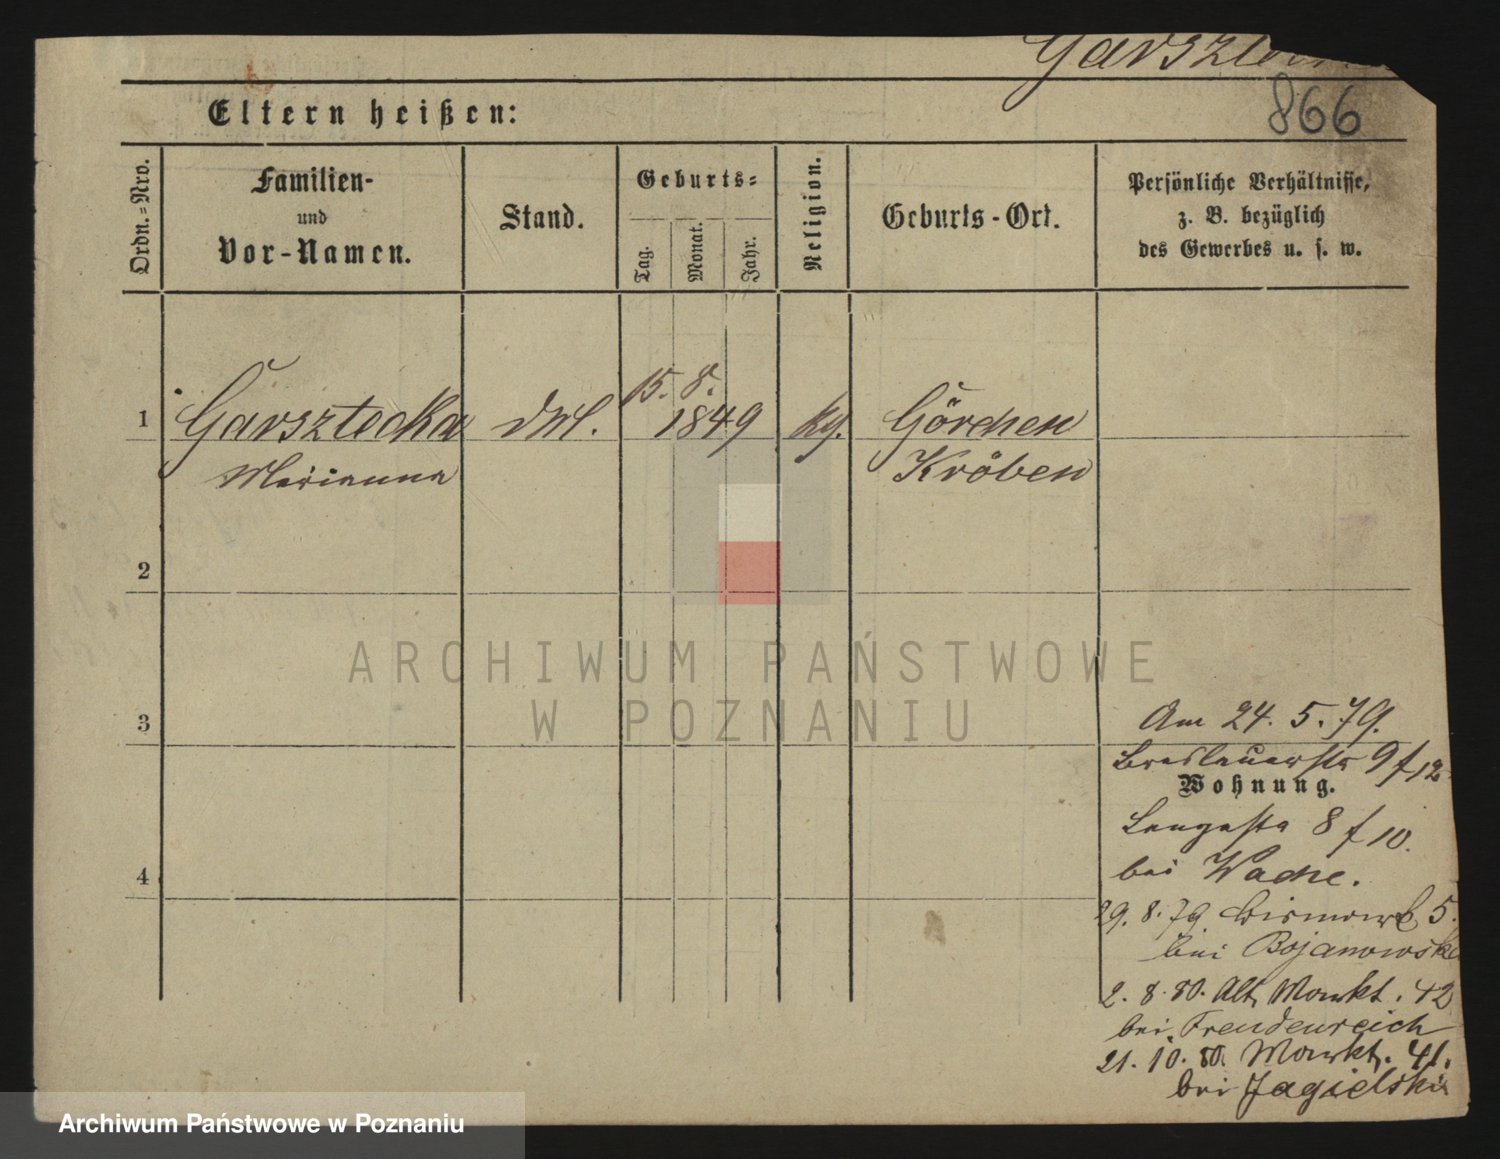 Garsztecka
866
Eltern heißen:
Ordn.-Nro.
Familien-
und
Vor-Namen.
Stand.
Geburts-
Tag.
Monat.
Jahr.
Religion.
Geburts-Ort.
Persönliche Verhältnisse,
z. B. bezüglich
des Gewerbes u. s. w.
1
Garsztecka
Marianna
15. 8.
1849
Görchen
Kröben
2
3
4
Am 24. 5. 79.
Breslauerstr 9 f 12
Wohnung.
Langestr 8 f 10.
bei Wache.
29. 8. 79 Bismarck 5.
bei Bojanowska
2. 8. 80. Alt. Markt. 42
bei Freudenreich
21. 10. 80. Markt. 41.
bei Jagielski
ARCHIWUM PAŃSTWOWE
W POZNANIU
Archiwum Państwowe w Poznaniu